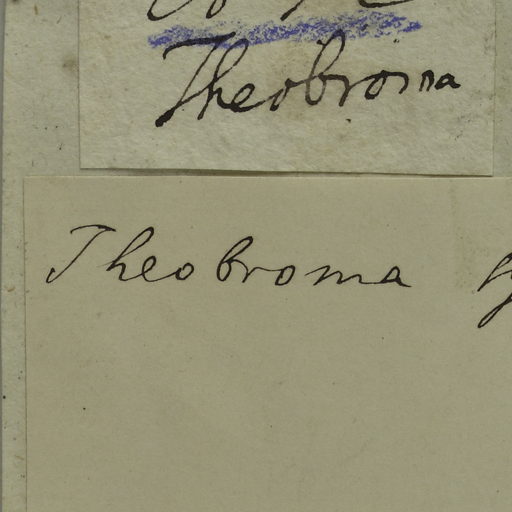 Theobroma
Theobroma